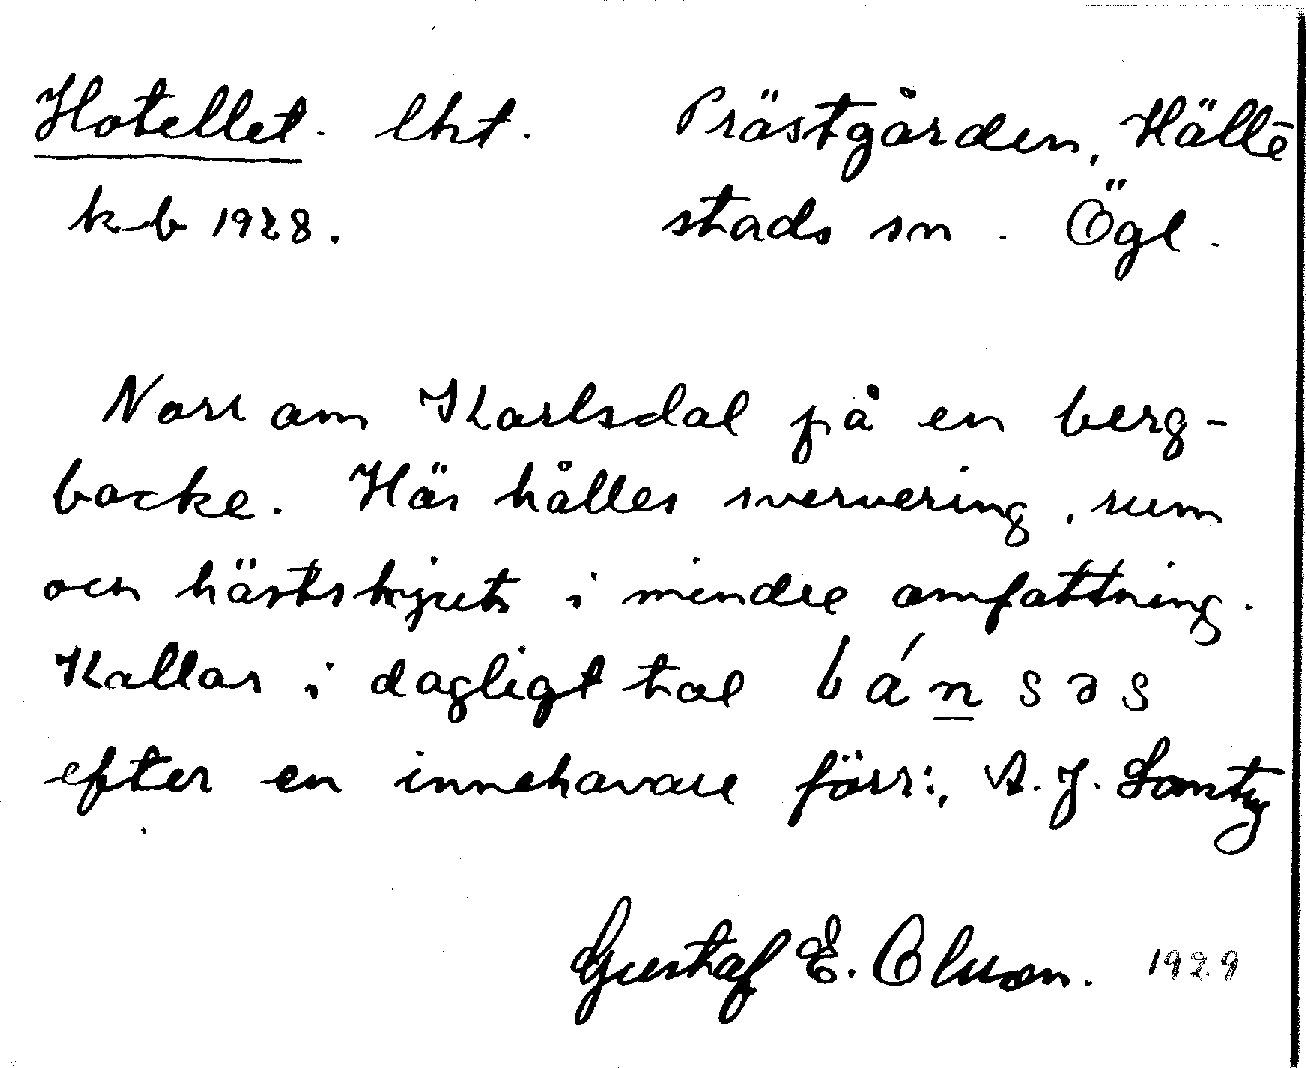 Hotellet. lht. Prästgården, Hälle
k-b 1928. stads sn. Ögl.
Norr om Karlsdal på en berg-
backe. Här hålles servering, rum
och hästskjuts i mindre omfattning.
Kallas i dagligt tal bánsəs
efter en innehavare förr:, A. J.
Gustaf E. Olsson. 1929